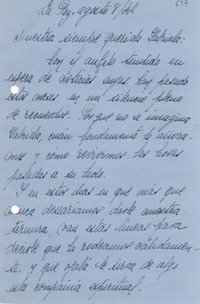 La Paz, agosto 8/48
Nuestra siempre querida Gabriela:
Con el anhelo tendido en
espera de noticias suyas han pasado
estos meses en un silencio pleno
de recuerdos. Por que no se imagina
Gabriela, cuán hondamente la añora-
mos y cómo revivimos las horas
pasadas a su lado.
Y en estos días en que más que
nunca desearíamos darle nuestra
ternura, van estas líneas para
decirle que la rodeamos cálidamen-
te, y que ojalá le sirva de algo
esta compañía espiritual.